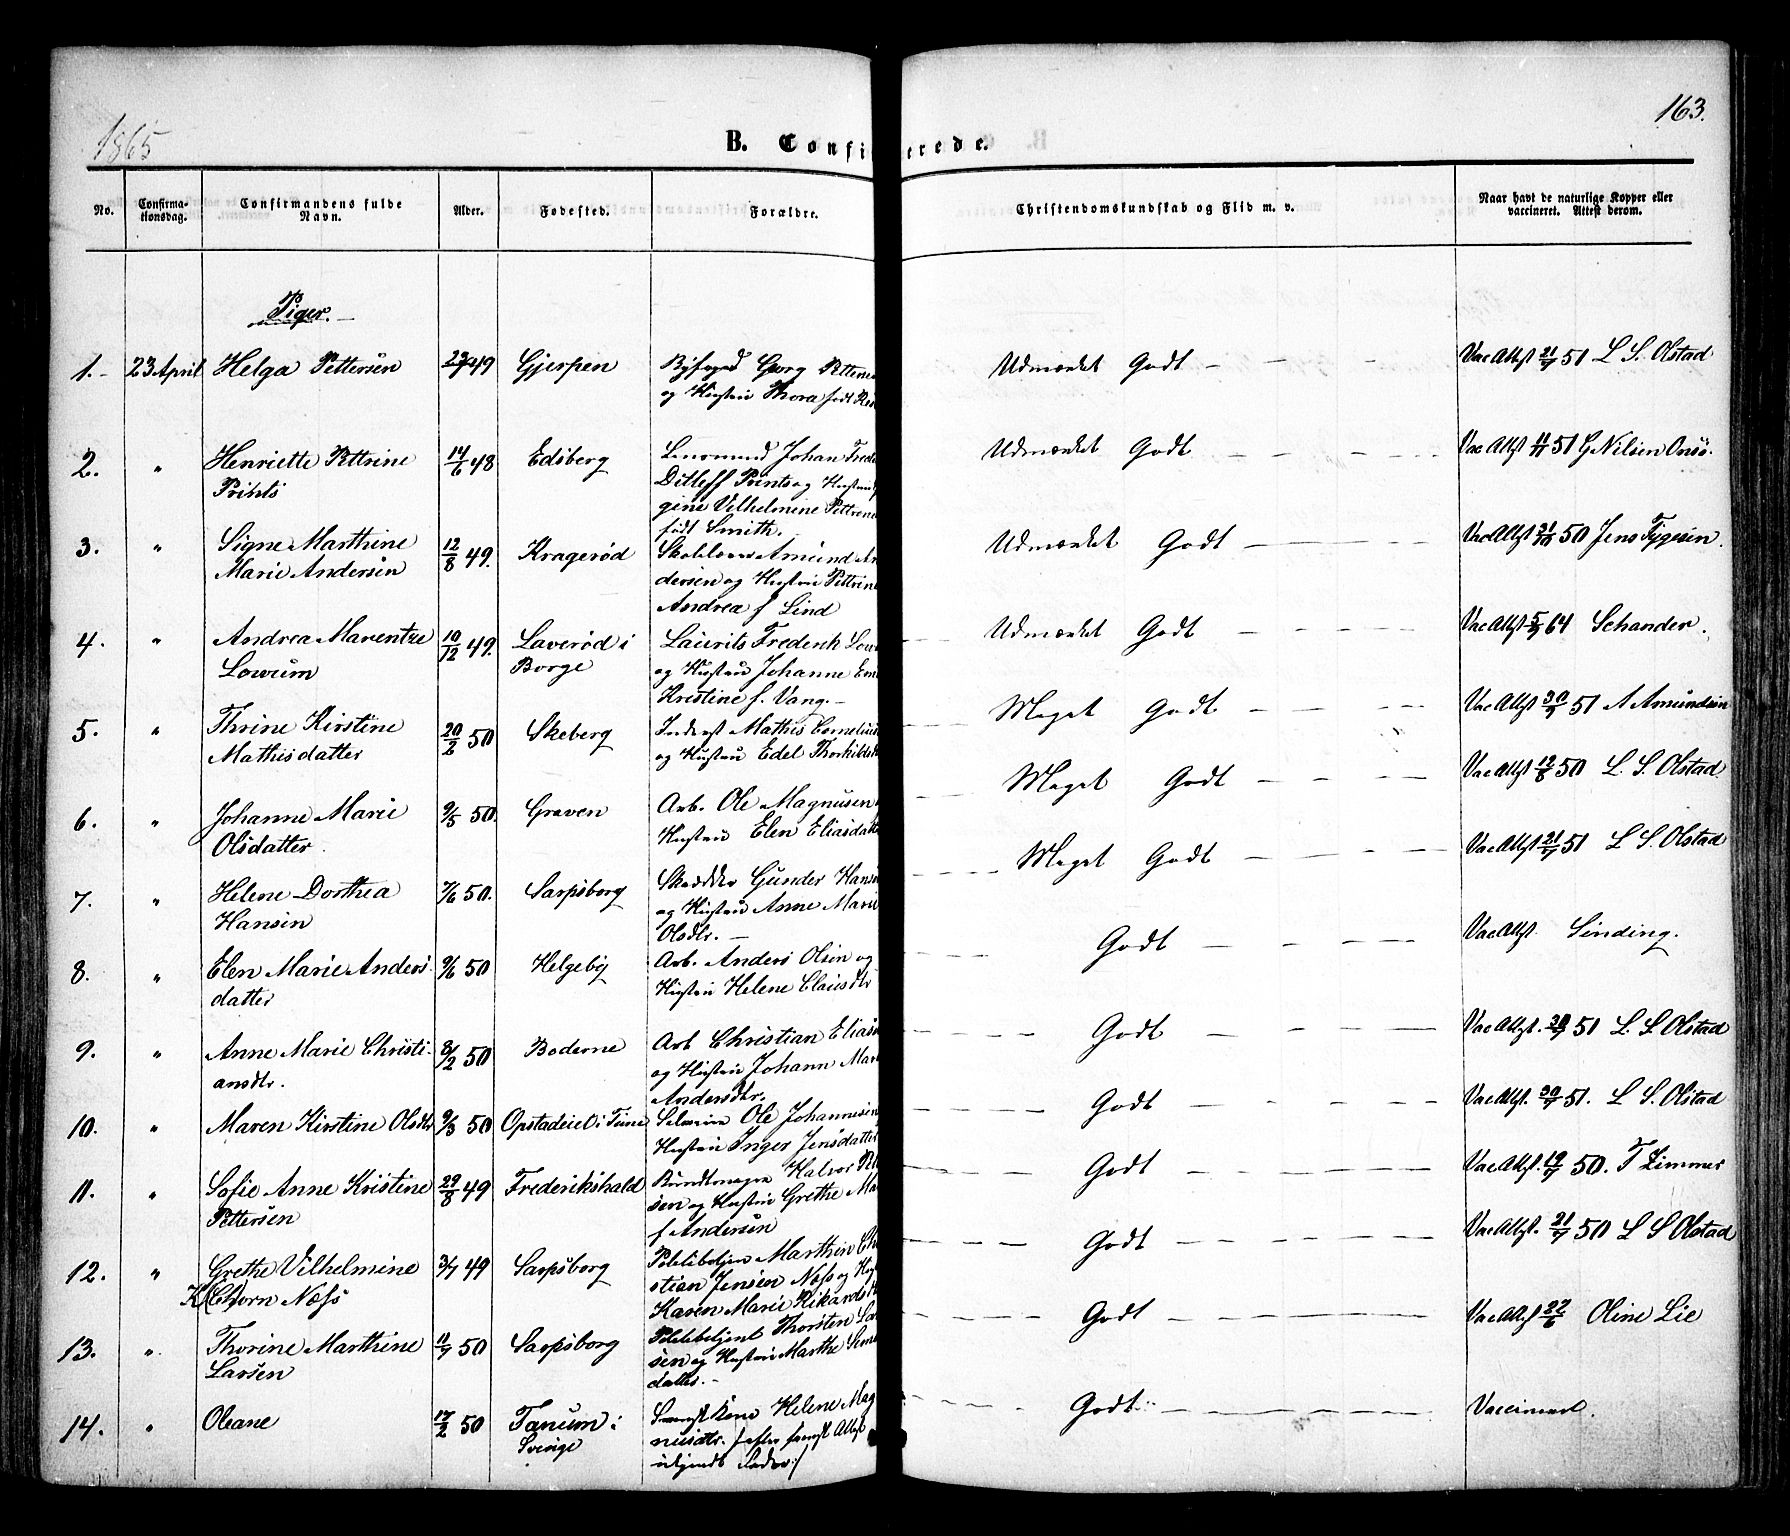 1865
163.
B. Confirmerede.
No.
Confirma-
tionsdag.
Confirmandens fulde
Navn.
Alder.
Fødested.
Forældre.
Christendomskundskab og Flid m. v.
Naar havt de naturlige Kopper eller
vaccineret. Attest derom.
Piger.
1. 23 April Helga Pettersen 49 Gjerpen Byfoged Georg Petterse
og Hustru Thora født
Udmærket Godt
Vac Attst 21/7 51 L S. Olstad
2. " Henriette Pettrine 14/6 48 Edsberg Johan Frede
Prints Ditleff Prints og Hustru
gine Vilhelmine Pettrene
født Smith.
Udmærket Godt
Vac Attst 11/11 51 G Nilsen Onsö.
3. " Signe Marthine 12/8 49. Kragerød Skolelærer Amund An
Marie Andersen dersen og Hustru Pettrine
Andrea f Lind
Udmærket Godt
Vac Attst 50 Jens Tygesen.
4. " Andrea Marentze 10/12 49. Laverød i Laurits Frederik Low
Lowum Borge og Hustru Johanne Em
Kristine f. Vang.
Udmærket Godt
Vac Attst 64 Schander.
5. " Thrine Kirstine 20/2 50 Skeberg Inderst Mathis Cornelius
Mathisdatter og Hustru Edel Thorkilds
Meget Godt
Vac Attst 30/9 51 A Amundsen
6. " Johanne Marie 9/5 50. Greven Arb. Ole Magnusen
Olsdatter. Hustru Elen Eliasdatt
Meget Godt
Vac Attst 12/8 50 L. S. Olstad
7. " Helene Dorthea 7/6 50. Sarpsborg Skrædder Gunder Hans
Hansen og Hustru Anne Marie
Olsdtr.
Meget Godt
Vac Attst 21/7 51 L S. Olstad
8. " Elen Marie Anders 9/6 50 Helgeby Arb. Anders Olsen og
datter Hustru Helene Clausdtr
Godt
Vac Attst Sinding.
9. " Anne Marie Christi- 8/2 50 Boderne Arb Christian Elias
ansdtr. og Hustru Johann Mar
Andersdtr.
Godt
Vac Attst. 51 L. S. Olstad
10. " Maren Kirstine Olsdtr 9/3 50 Opstadeiet i Tune Ole Johannesen
Hustru Inger Jensdatter
Godt
Vac Attst. 51. L. S. Olstad
11. " Sofie Anne Kristine 29/8 49 Frederikshald Bundtmager Halvor
Pettersen sen og Hustru Grethe Ma
f Andersen
Godt
Vac Attst. 19/7 50. T Zimmer
12. " Grethe Vilhelmine 3/7 49 Sarpsborg Politibetjen Marthin Ch
Næss stian Jensen Næss og
Karen Marie Rikards
Godt
Vac Attst. 21/7 50 L S Olstad
13. " Thorine Marthine 11/7 50 Sarpsborg Politibetjent Thorsten La
Larsen sen og Hustru Marthe
datter.
Godt
Vac Attst 22/6 Oline Lie
14. " Oleane 17/2 50 Tanum i Helene Mag
Sverige nusdtr.
Godt
Vaccineret.